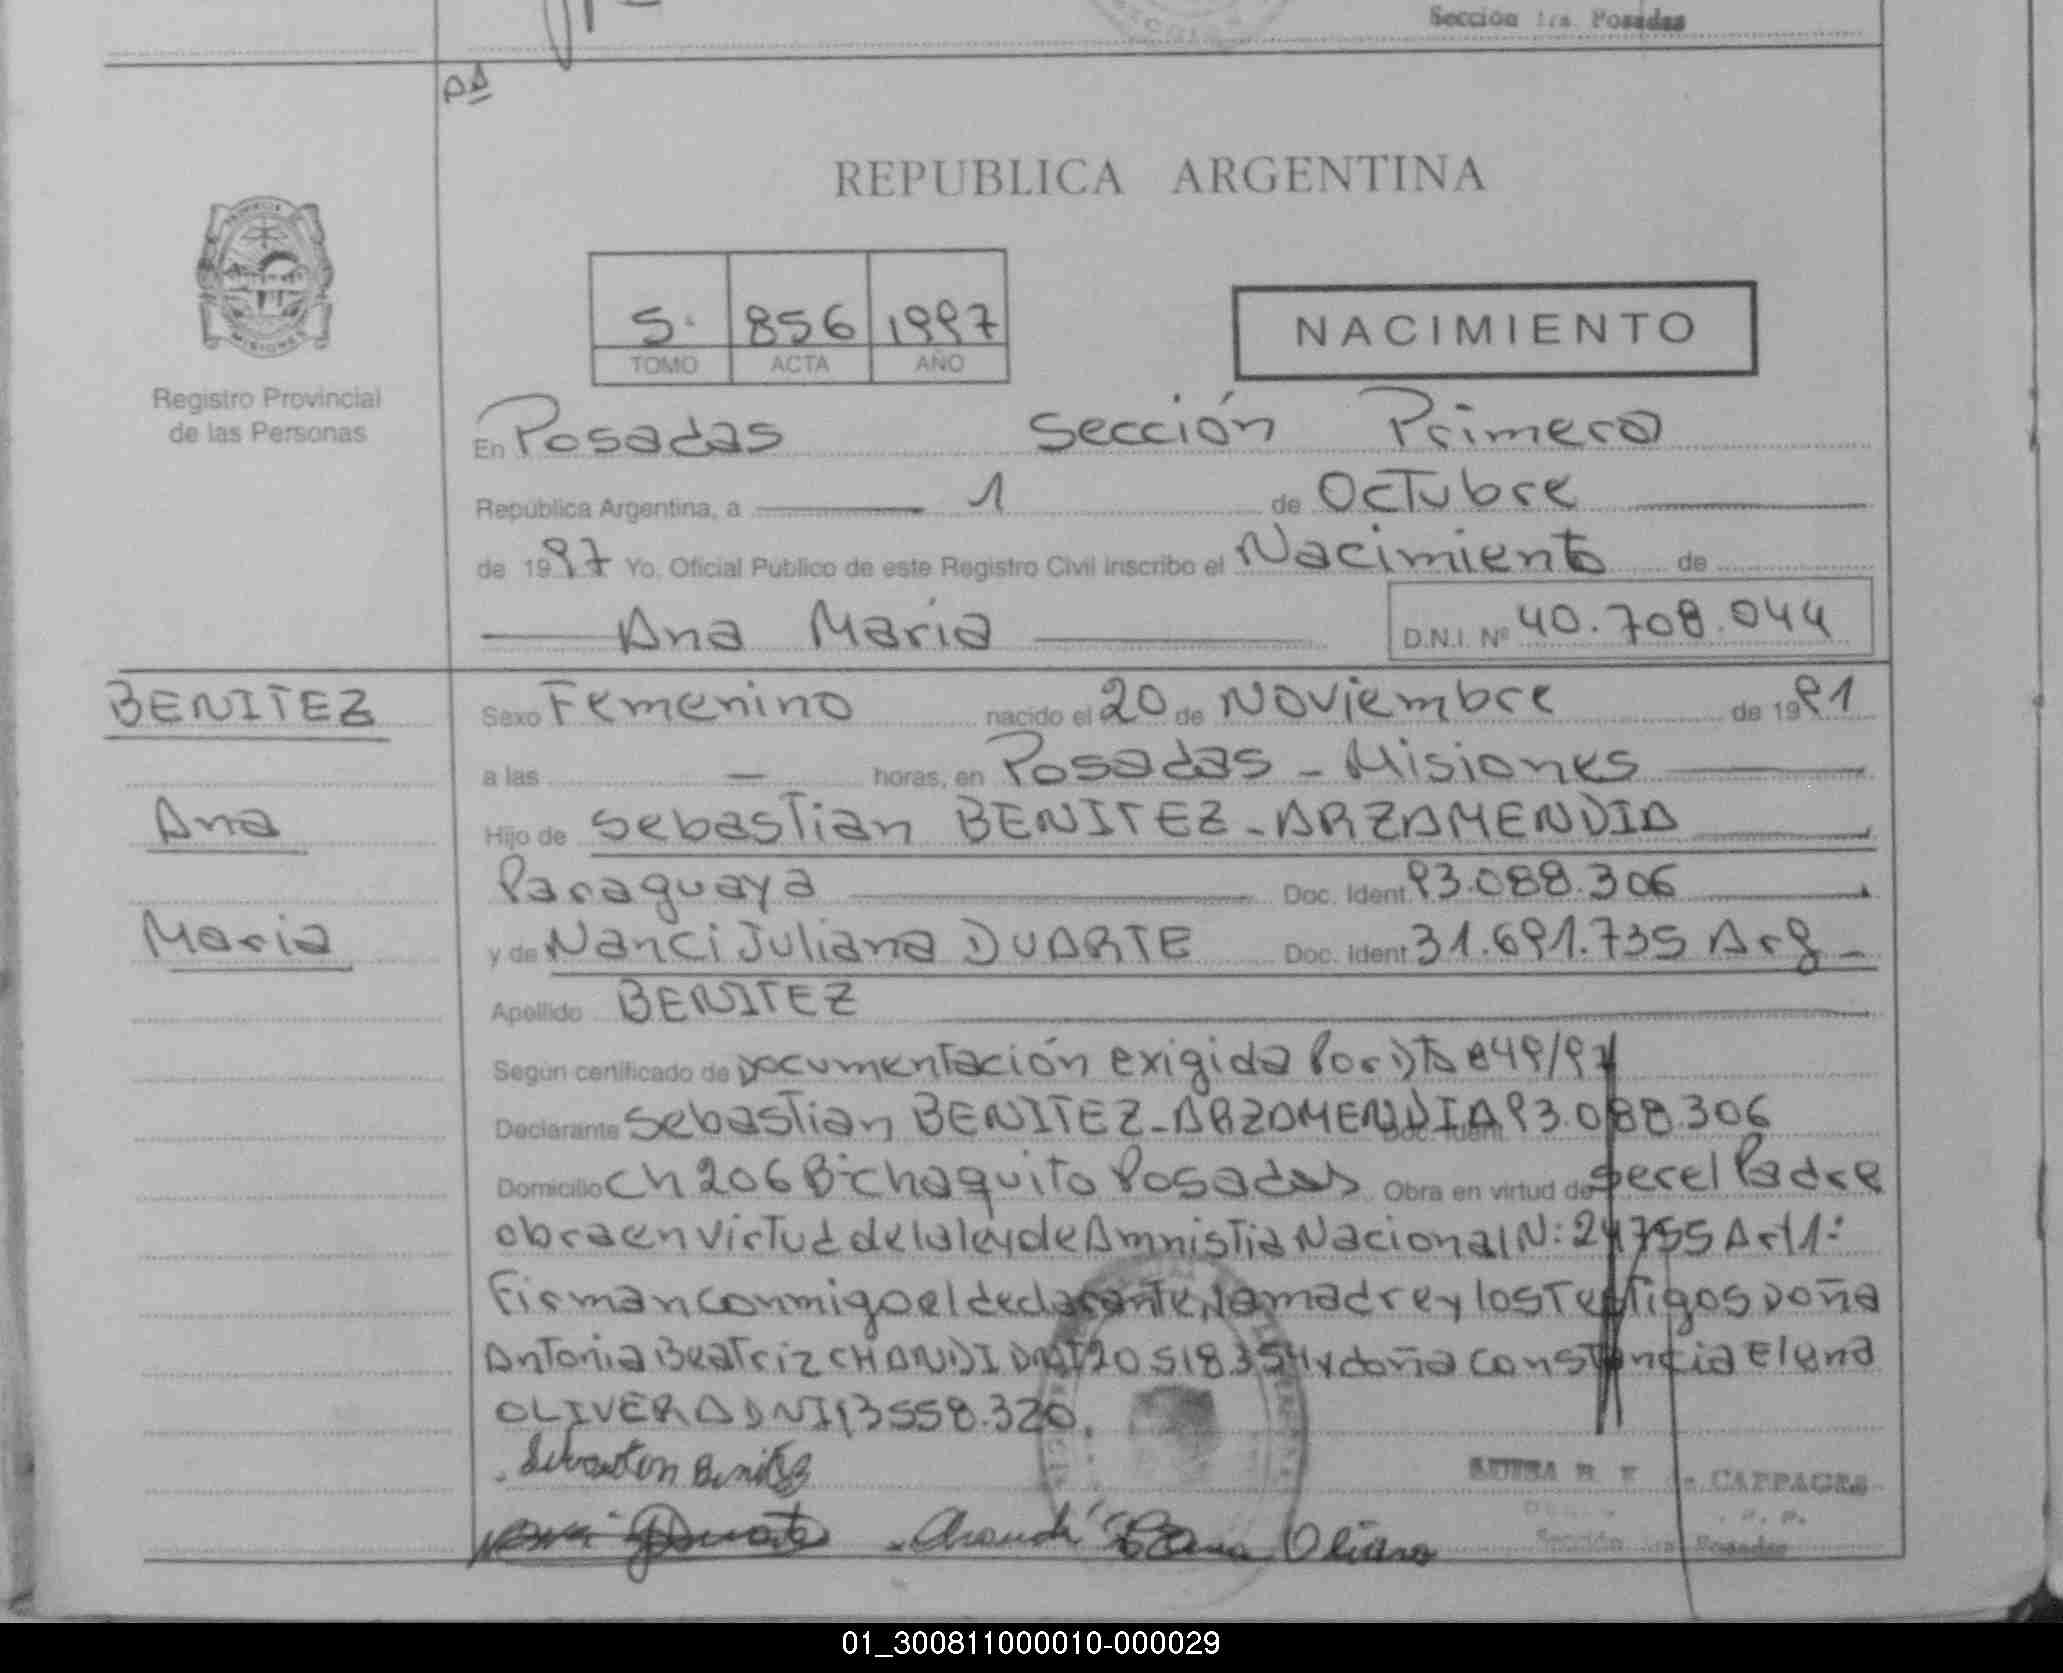 Sección 1ra. Posadas
REPUBLICA ARGENTINA
MISIONES
5. 856 1997
TOMO ACTA AÑO
NACIMIENTO
Registro Provincial
de las Personas
En Posadas Sección Primera
República Argentina, a 1 de Octubre
de 1997 Yo, Oficial Publico de este Registro Civil inscribo el Nacimiento de
Ana María
D.N.I. Nº 40.708.044
BENITEZ
Ana
Maria
Sexo Femenino nacido el 20 de Noviembre de 1991
a las — horas, en Posadas - Misiones
Hijo de Sebastian BENITEZ - ARZAMENDIA
Paraguaya Doc. Ident. 93.088.306
y de Nanci Juliana DUARTE Doc. Ident. 31.691.735 Arg -
Apellido BENITEZ
Según certificado de Documentación exigida Por Dto 849/97
Declarante Sebastian BENITEZ - ARZAMENDIA 93.088.306
Domicilio Ch 206 Bº chaquito Posadas Obra en virtud de ser el Padre
obra en virtud de la ley de Amnistia Nacional N: 24755 Art 1º
Firman conmigo el declarante, la madre y los Testigos Doña
Antonia Beatriz CHANDI DNI 20 518.354 y doña Constancia Elena
OLIVERA DNI 13558.320.
Sebastian Benitez
Duarte Chandi Elena Olivera
CAPPAGES
Sección 1ra Posadas
01_300811000010-000029